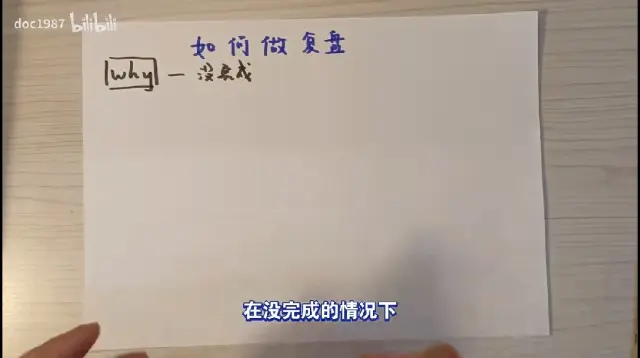 doc1987 bilibili
如何做复盘
why — 没完成
在没完成的情况下